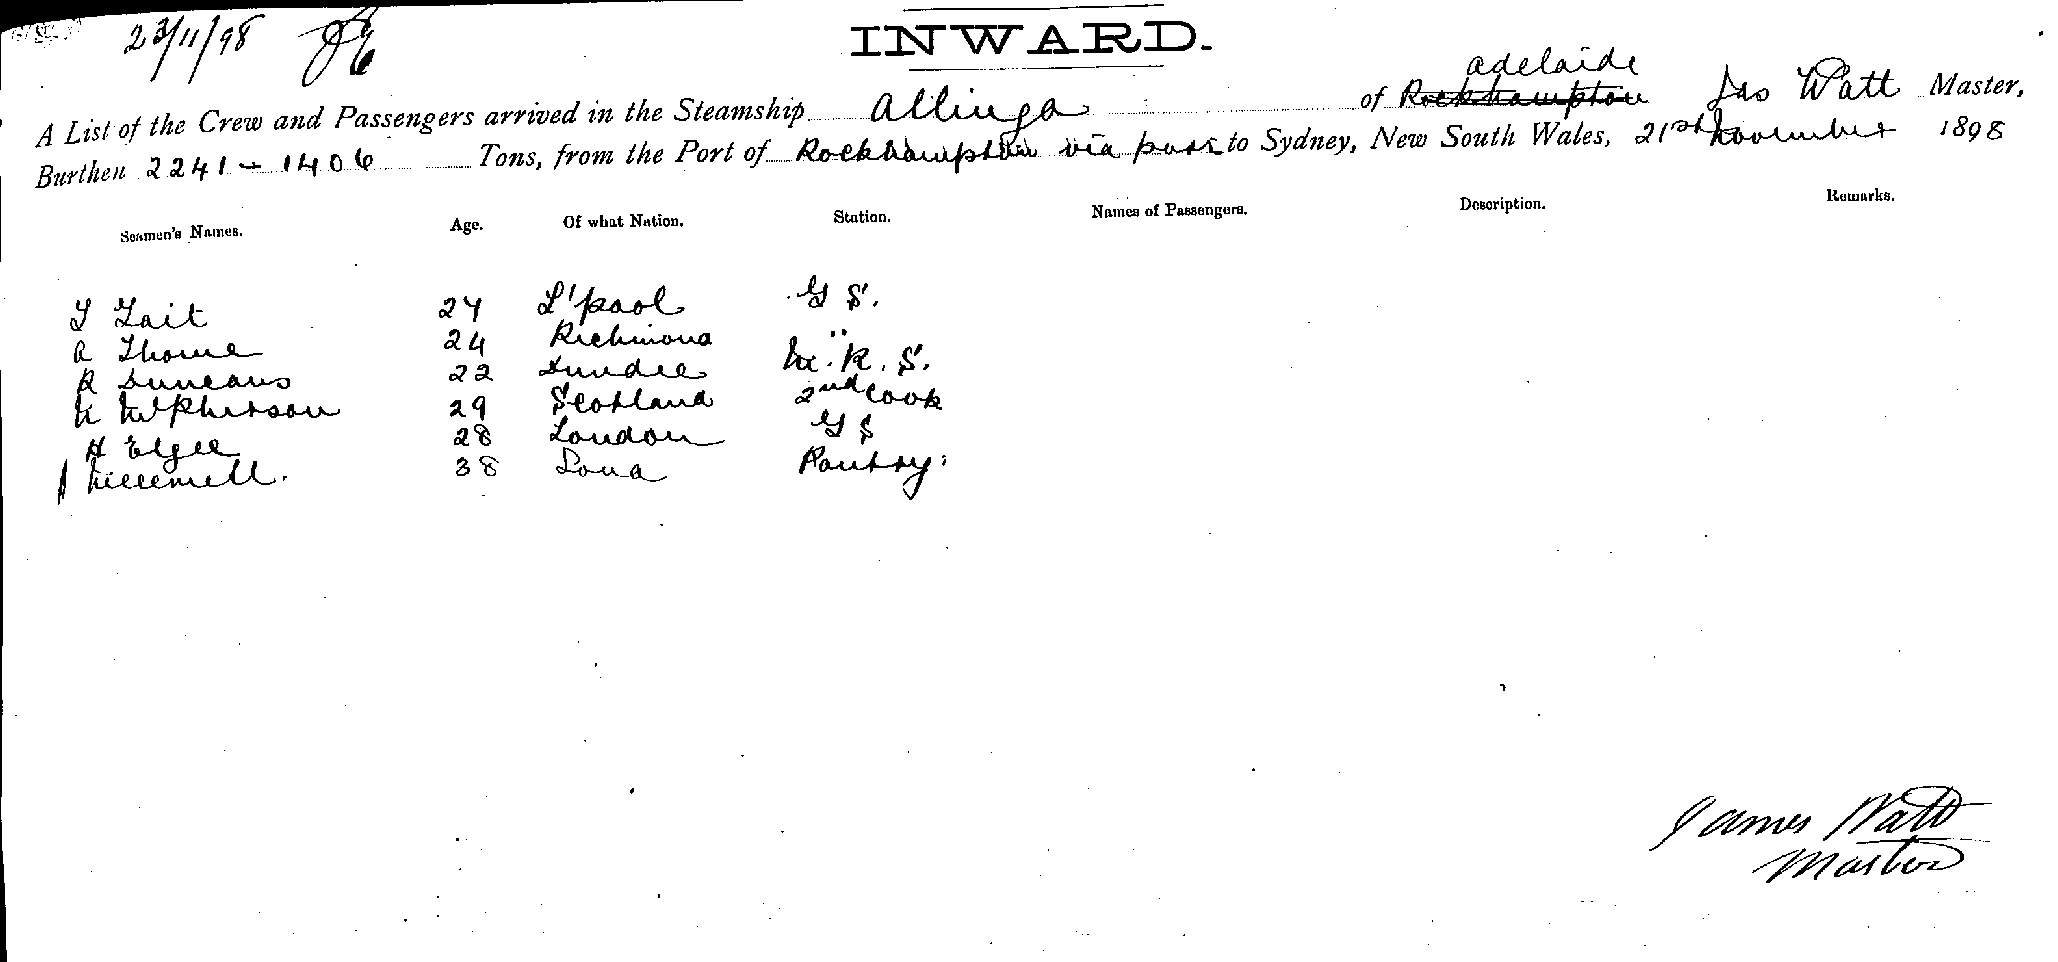 23/11/98
INWARD.
Adelaide
A List of the Crew and Passengers arrived in the Steamship Allinga of Rockhampton Jas Watt Master,
Burthen 2241 - 1406 Tons, from the Port of Rockhampton via ports to Sydney, New South Wales, 21st November 1898
Seamen's Names. Age. Of what Nation. Station. Names of Passengers. Description. Remarks.
T Tait 27 L'pool G S.
A Thorne 24 Richmond "
R Duncans 22 Dundee M. R. S.
N McPherson 29 Scotland 2nd Cook
H Elgee 28 London G S
38 Pantry
James Watt
Master